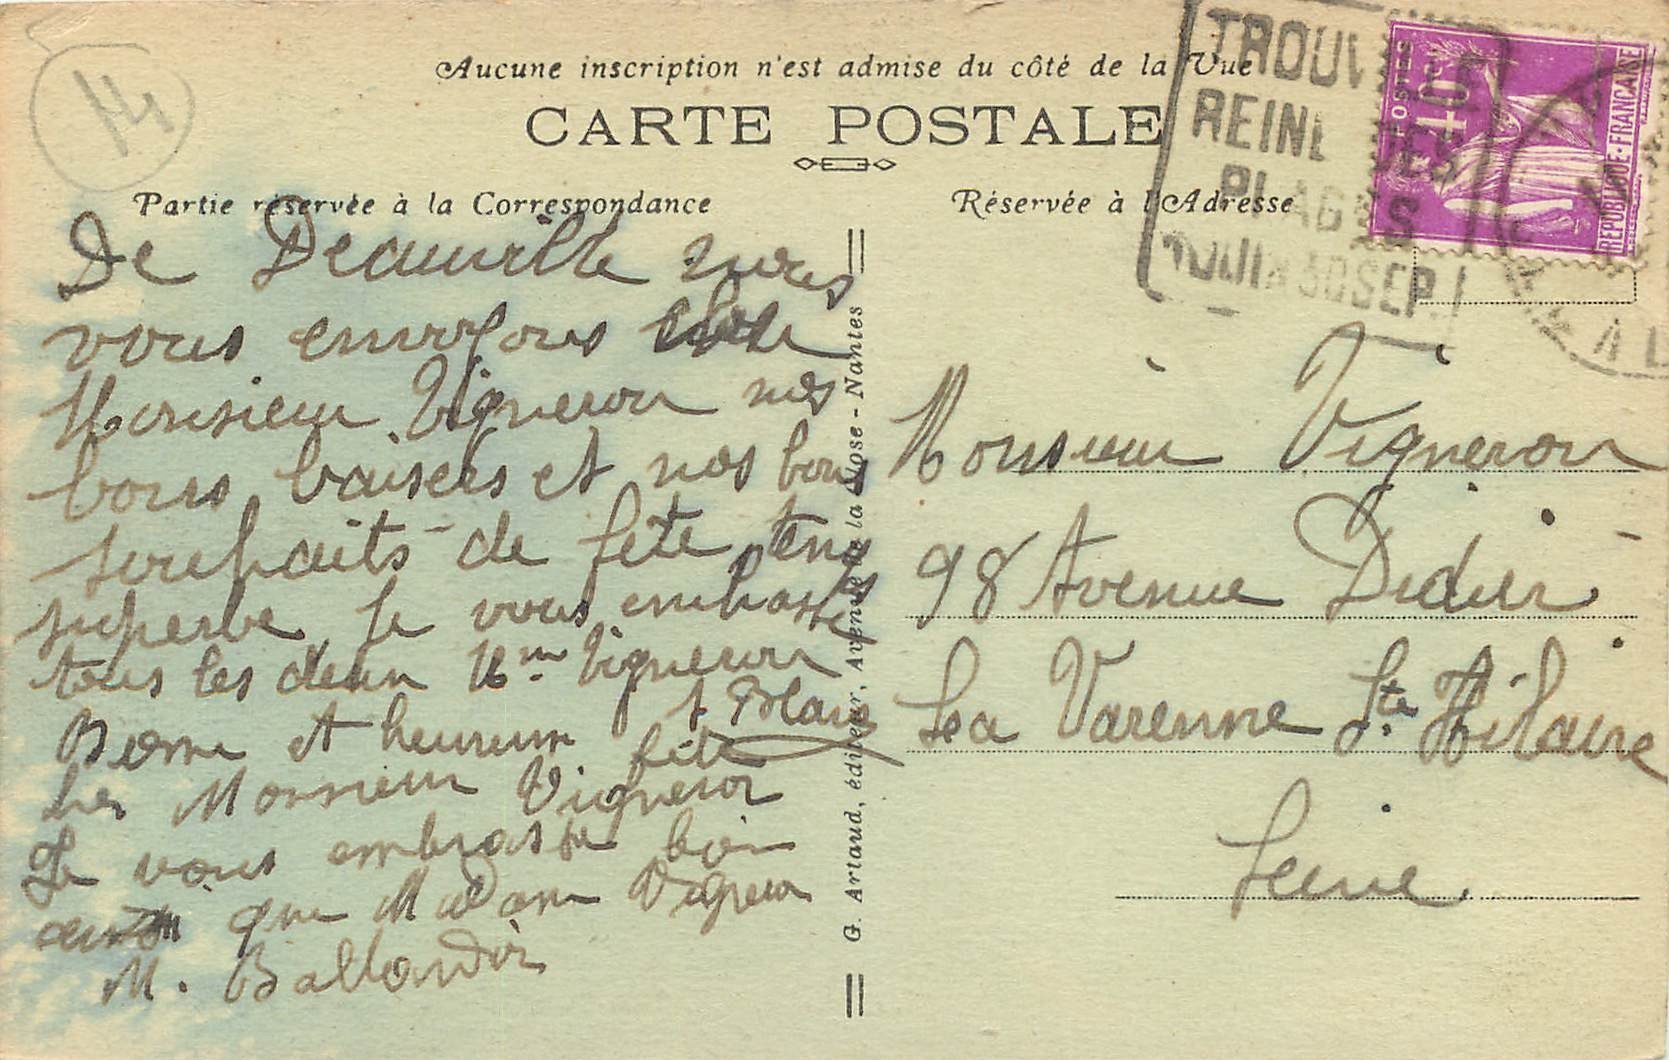 14
Aucune inscription n'est admise du côté de la Vue
CARTE POSTALE
Partie réservée à la Correspondance
Réservée à l'Adresse
TROUV
REINE DES
PLAGES
JUIN à SEP.
POSTES
40c
REPUBLIQUE·FRANÇAISE
De Deauville nous
vous envoyons cher
Monsieur Vigneron nos
bons baisers et nos bons
souhaits de fête temps
superbe Je vous embrasse
tous les deux Mme Vigneron
Bonne et heureuse fête
J Blanc
cher Monsieur Vigneron
Je vous embrasse bien
ainsi que Madame Vigneron
M. Ballandir
G. Artaud, éditeur, Avenue de la Close - Nantes
Monsieur Vigneron
98 Avenue Didier
La Varenne Ste Hilaire
Seine